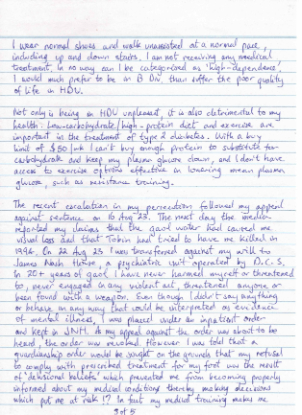 I wear normal shoes and walk unassisted at a normal pace,
including up and down stairs. I am not receiving any medical
treatment. In no way can I be categorized as 'high-dependence'.
I would much prefer to be in B Div. than suffer the poor quality
of life in HDU.
Not only is being in HDU unpleasant, it is also detrimental to my
health: low-carbohydrate/high-protein diet and exercise are
important in the treatment of type 2 diabetes. With a buy
limit of $50/wk I can't buy enough protein to substitute for
carbohydrate and keep my plasma glucose down, and I don't have
access to exercise options effective in lowering mean plasma
glucose, such as resistance training.
The recent escalation in my persecution followed my appeal
against sentence on 16 Aug 23. The next day the media
reported my claims that the gaol water had caused me
visual loss and that Tobin had tried to have me killed in
1996. On 22 Aug 23 I was transferred against my will to
James Nash House, a psychiatric unit operated by D.C.S.
In 20+ years of gaol I have never harmed myself or threatened
to, never engaged in any violent act, threatened anyone, or
been found with a weapon. Even though I didn't say anything
or behave in any way that could be interpreted as evidence
of mental illness, I was placed under an inpatient order
and kept in JNH. As my appeal against the order was about to be
heard, the order was revoked. However I was told that a
guardianship order would be sought on the grounds that my refusal
to comply with prescribed treatment for my foot was the result
of 'delusional beliefs' which prevented me from becoming properly
informed about my medical conditions thereby making decisions
which put me at risk!? In fact my medical training makes me
3 of 5